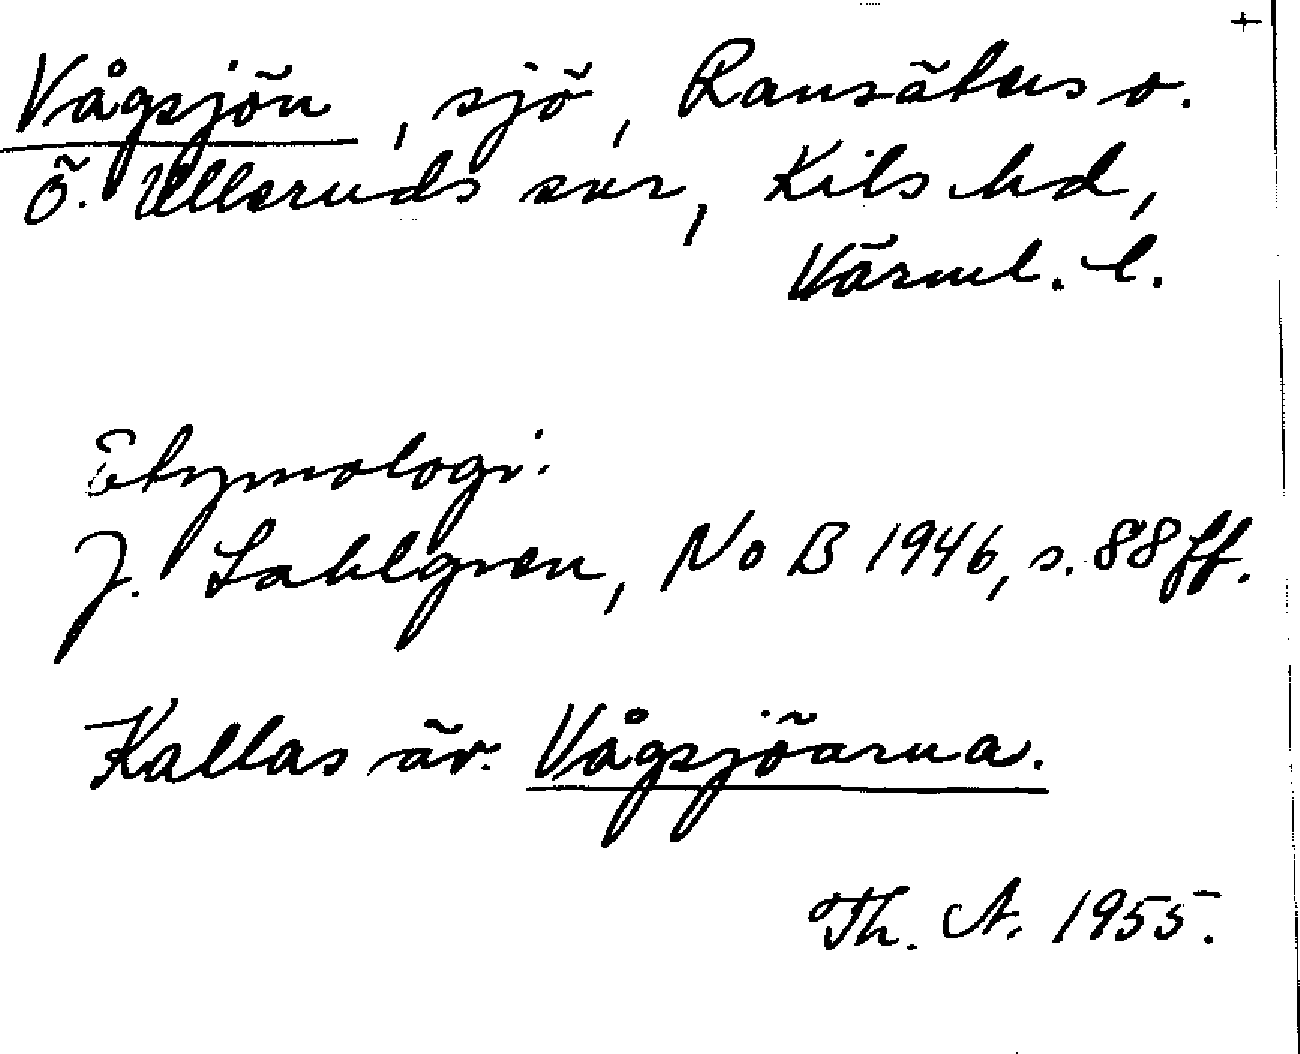 Vågsjön, sjö, Ransäters o.
Ö. Ulleruds snr, Kils hd,
Värml. l.
Etymologi:
J. Sahlgren, NoB 1946, s. 88 ff.
Kallas äv. Vågsjöarna.
Th. A. 1955.